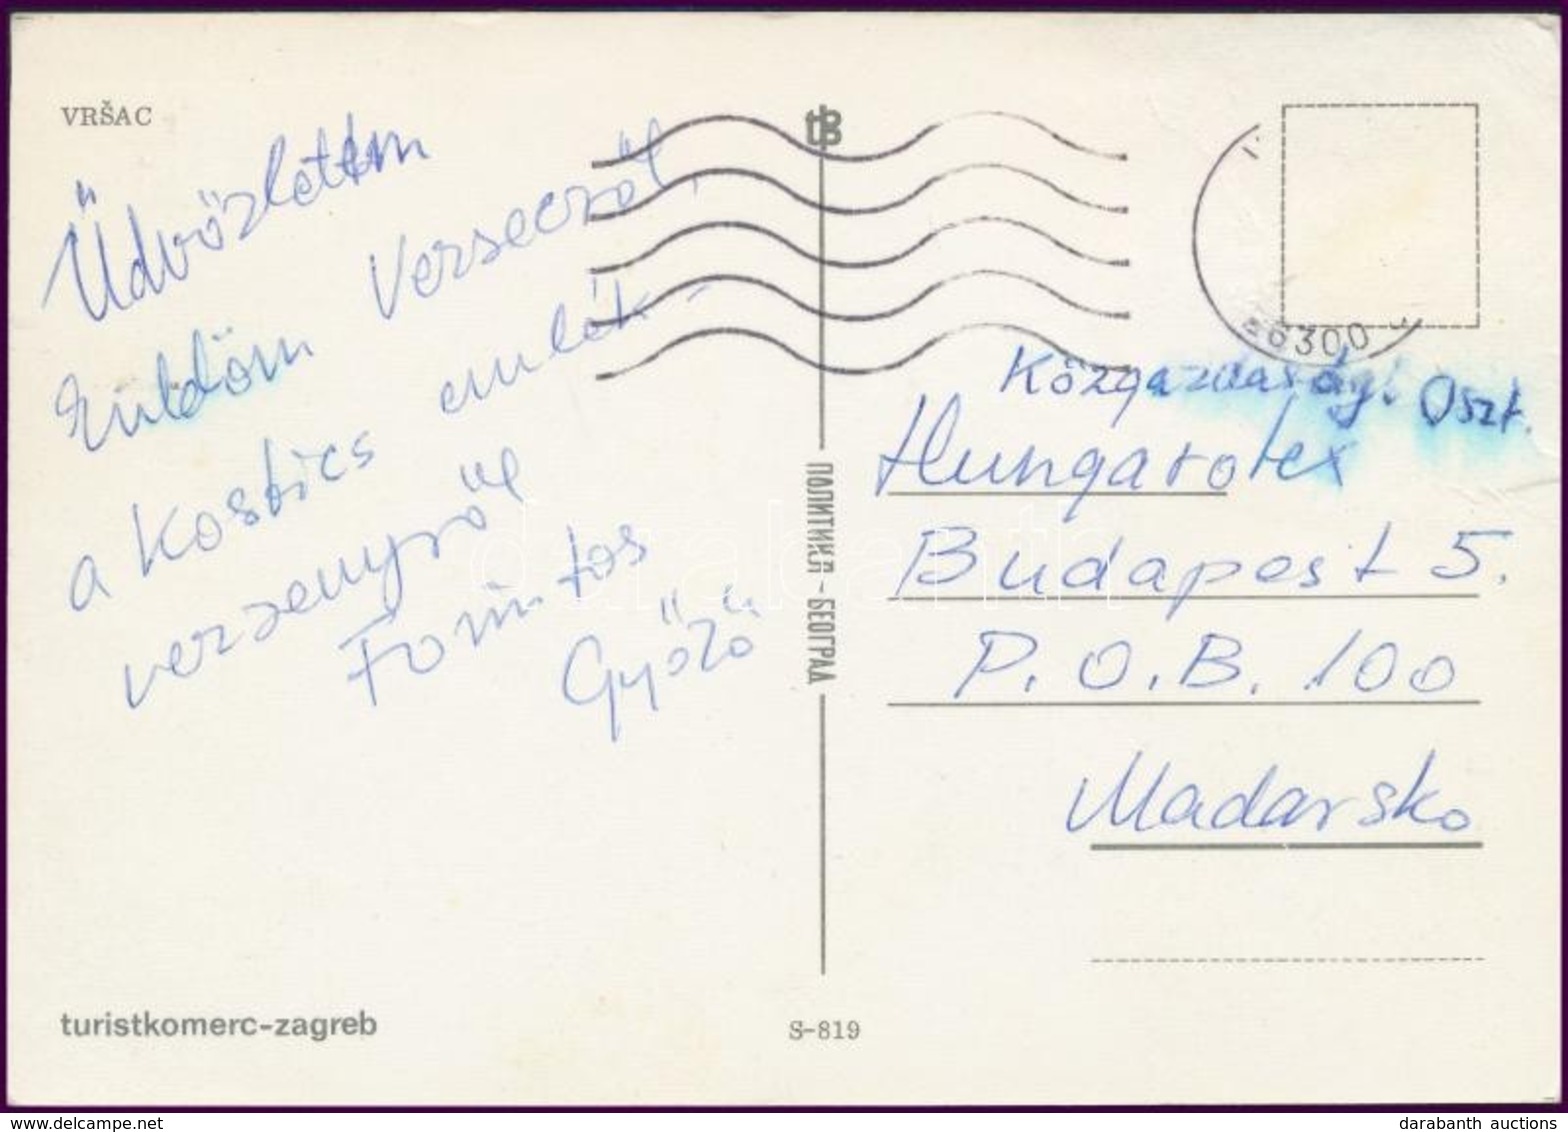 VRŠAC
tB
Üdvözletem
Versecről,
küldöm
a Kostics emlék-
versenyről
Forintos
Győző
26300
Közgazdasági Oszt.
Hungarotex
Budapest 5.
P.O.B. 100
Madarsko
ПОЛИТИКА-БЕОГРАД
turistkomerc-zagreb
S-819
darabanth
darabanth auctions